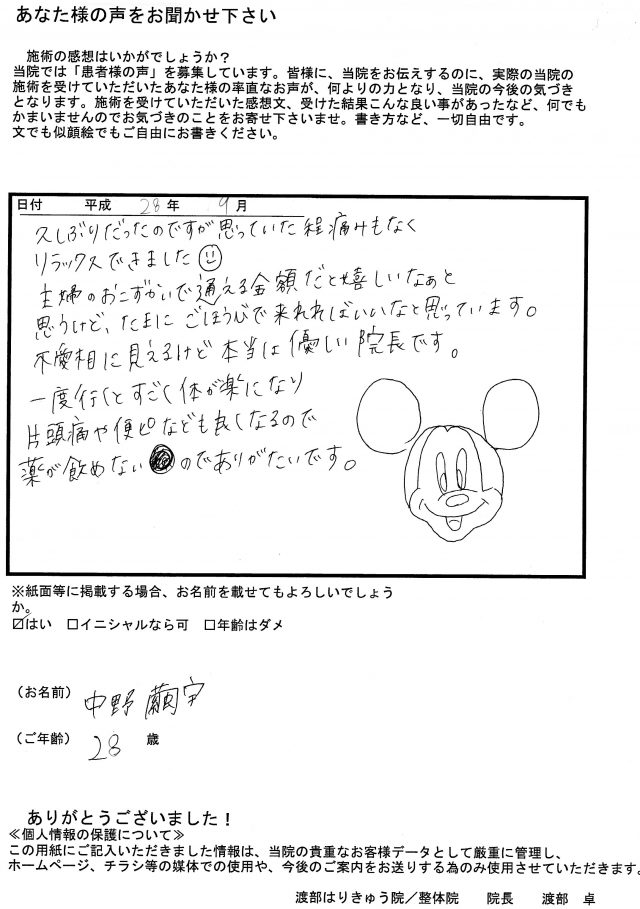 あなた様の声をお聞かせ下さい
施術の感想はいかがでしょうか？
当院では「患者様の声」を募集しています。皆様に、当院をお伝えするのに、実際の当院の
施術を受けていただいたあなた様の率直なお声が、何よりの力となり、当院の今後の気づき
となります。施術を受けていただいた感想文、受けた結果こんな良い事があったなど、何でも
かまいませんのでお気づきのことをお寄せ下さいませ。書き方など、一切自由です。
文でも似顔絵でもご自由にお書きください。
日付 平成 28 年 9 月
久しぶりだったのですが思っていた程痛みもなく
リラックスできました
主婦のおこずかいで通える金額だと嬉しいなぁと
思うけど、たまにごほうびで来れればいいなと思っています。
不愛相に見えるけど本当は優しい院長です。
一度行くとすごく体が楽になり
片頭痛や便ピなども良くなるので
薬が飲めないのでありがたいです。
※紙面等に掲載する場合、お名前を載せてもよろしいでしょう
か。
☑はい □イニシャルなら可 □年齢はダメ
（お名前） 中野 繭宇
（ご年齢） 28 歳
ありがとうございました！
≪個人情報の保護について≫
この用紙にご記入いただきました情報は、当院の貴重なお客様データとして厳重に管理し、
ホームページ、チラシ等の媒体での使用や、今後のご案内をお送りする為のみ使用させていただきます。
渡部はりきゅう院／整体院 院長 渡部 卓